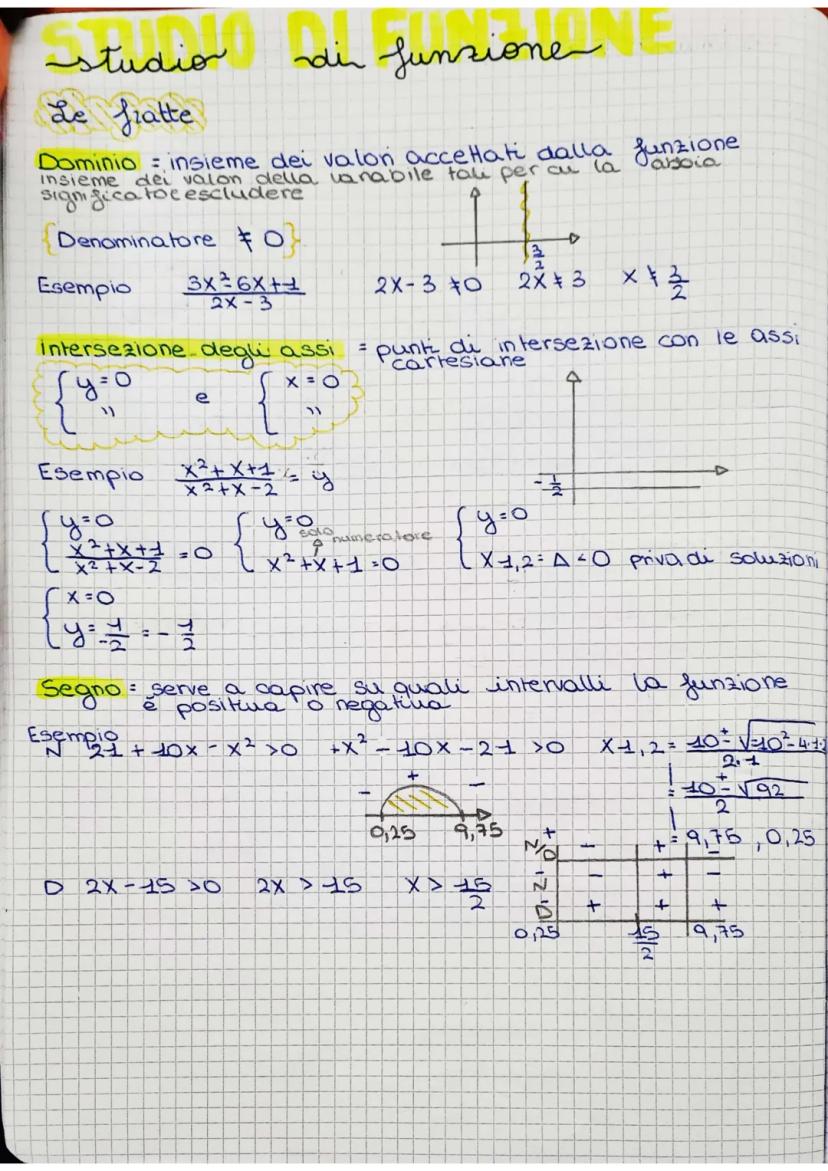 STUDIO DI FUNZIONE
studio di funzione
Le fratte
Dominio = insieme dei valori accettati dalla funzione
insieme dei valori della variabile tali per cui la abbia
significato e escludere
{Denominatore ≠ 0}
3/2
Esempio (3x²-6x+1)/(2x-3) 2x-3 ≠0 2x ≠ 3 x ≠ 3/2
intersezione degli assi = punti di intersezione con le assi
cartesiane
{ y=0 e { x=0
{ '' { ''
Esempio (x²+x+1)/(x²+x-2) = y
-1/2
{ y=0 { y=0 { y=0
solo numeratore
{ (x²+x+1)/(x²+x-2) =0 { x²+x+1=0 { x1,2= Δ<0 priva di soluzioni
{ x=0
{ y= 1/-2 = - 1/2
Segno = serve a capire su quali intervalli la funzione
è positiva o negativa
Esempio
N 21+10x-x²>0 +x²-10x-21>0 x1,2= (10±√-10²-4·1·)/(2·1)
= (10±√92)/2
= 9,75 , 0,25
- + -
0,25 9,75
D 2x-15>0 2x>15 x> 15/2
N/D + - + -
N - - + -
D - + + +
0,25 15/2 9,75